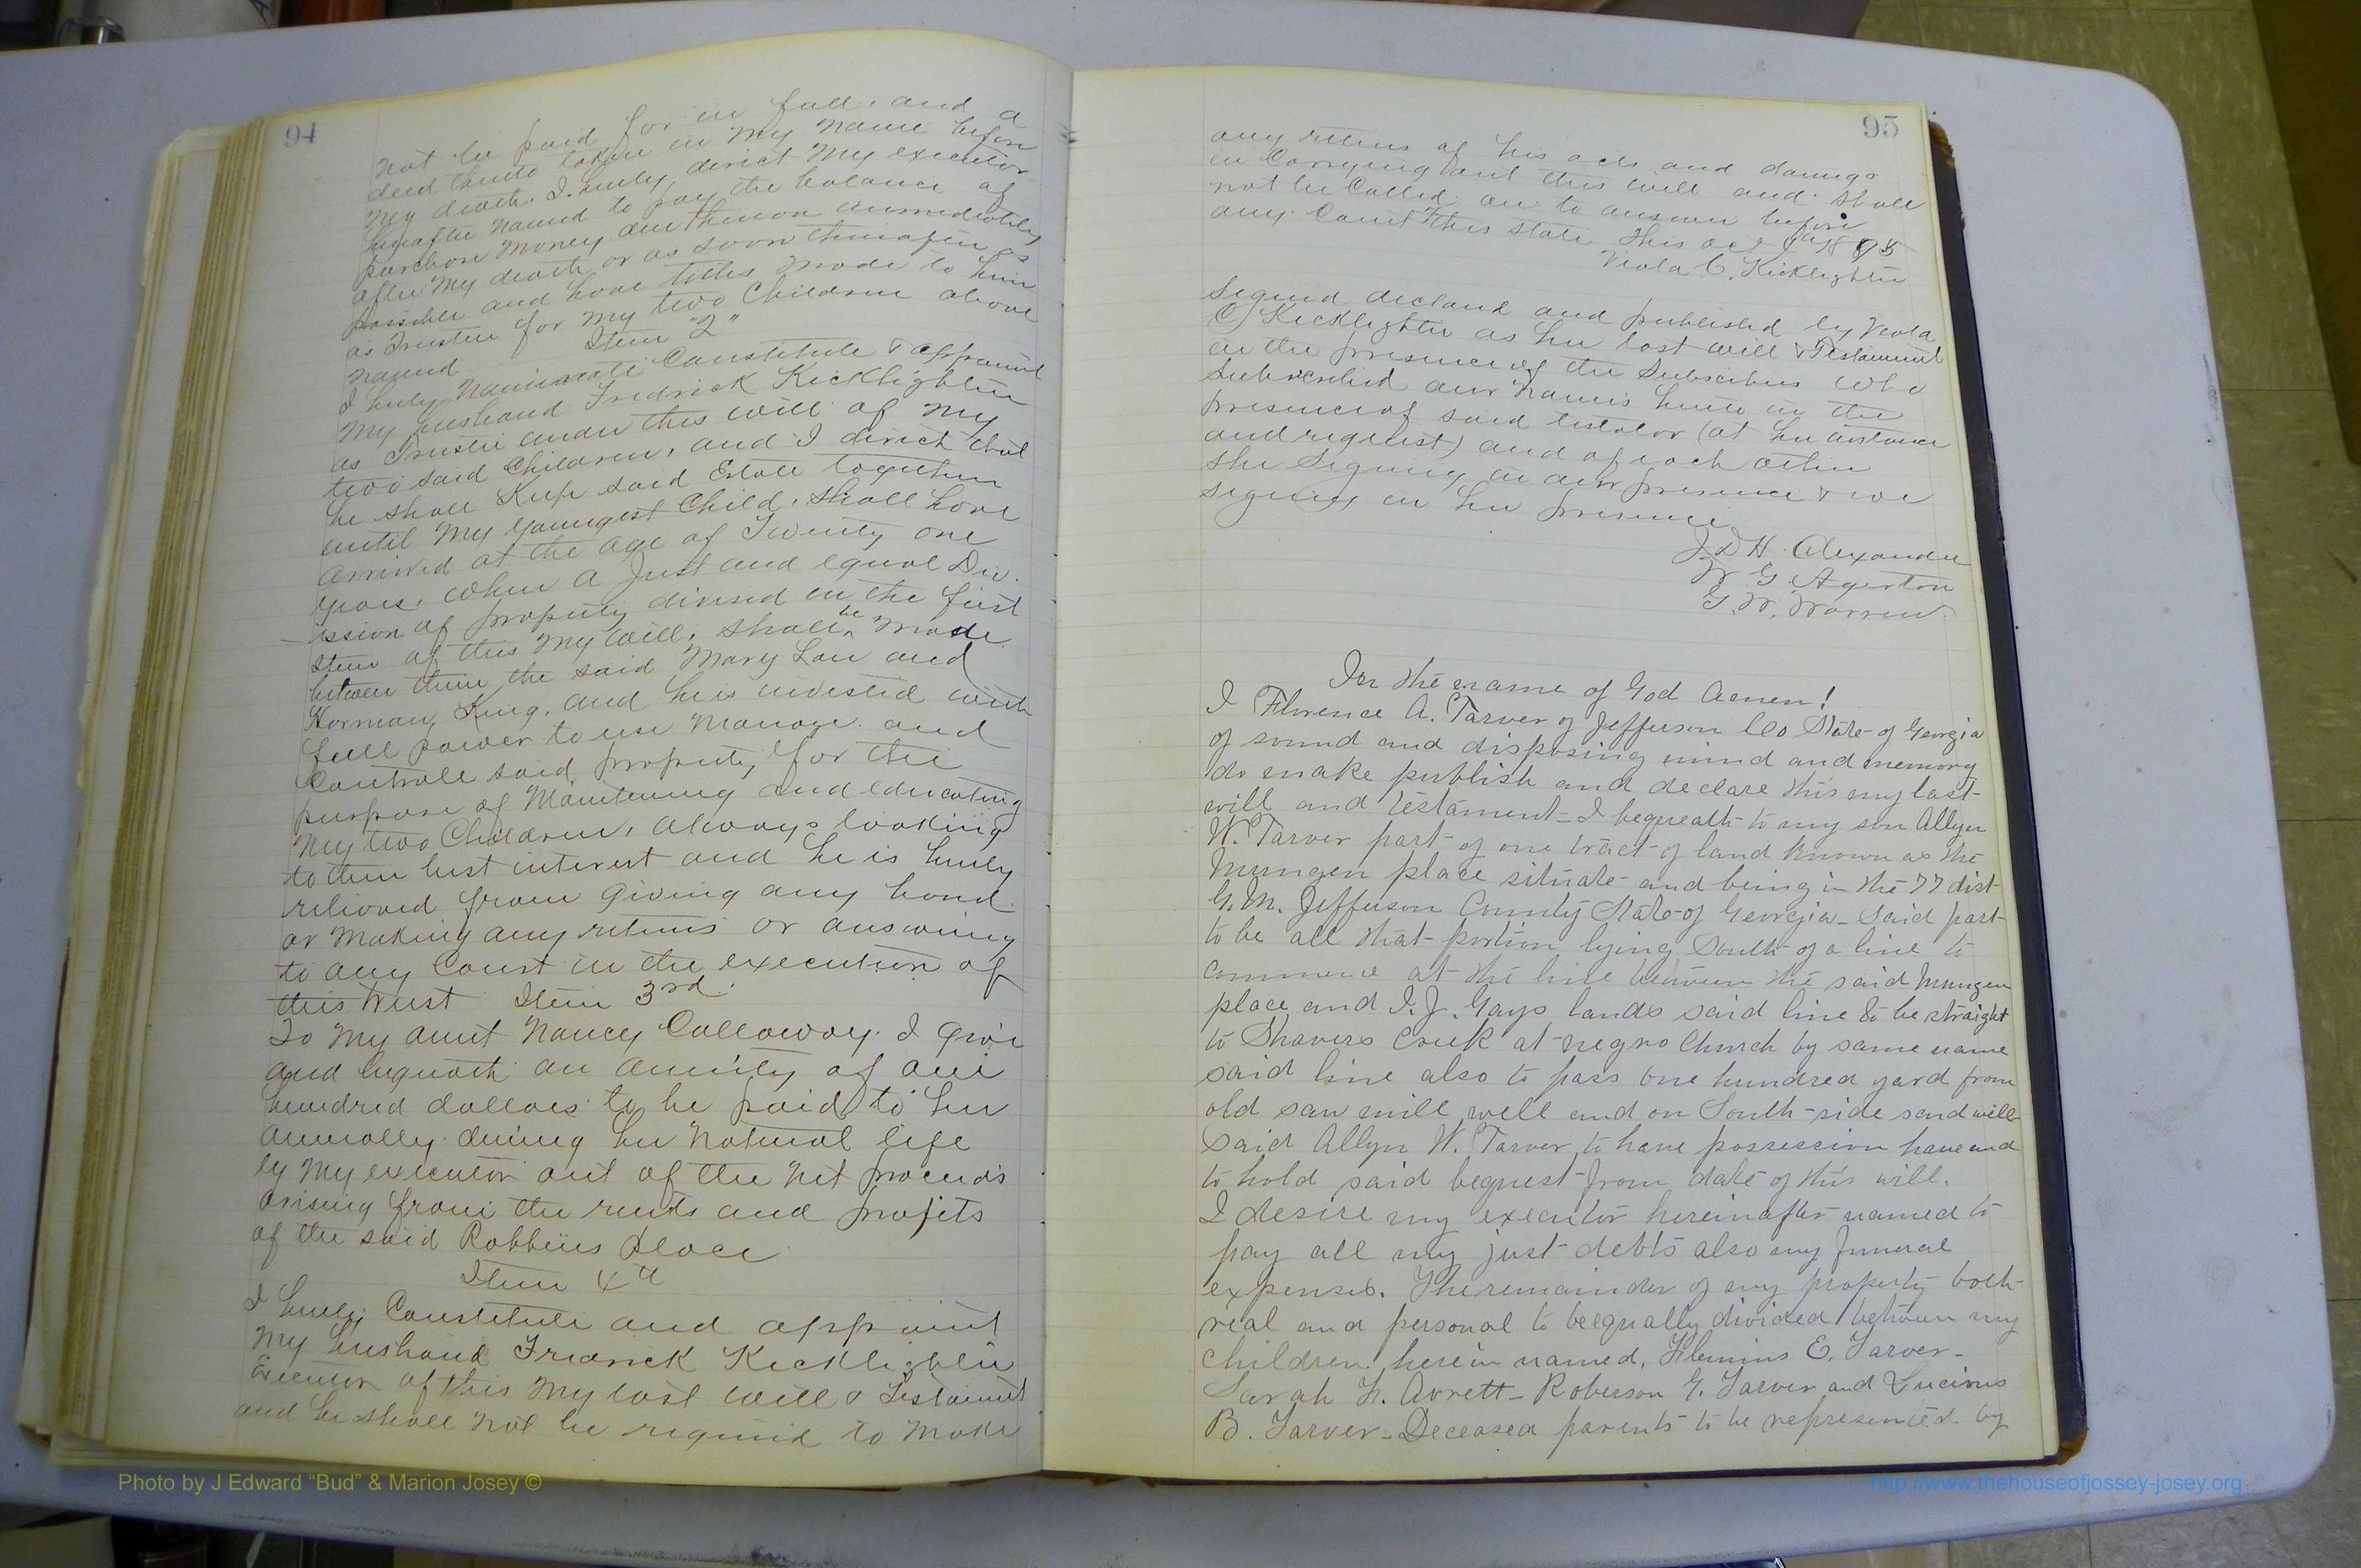 94
not be paid for in full, and a
deed thereto taken in my name before
my death. I hereby direct my executor
hereafter named to pay the balance of
purchase money due thereon immediately
after my death or as soon thereafter as
possible and have titles made to him
as Trustee for my two Children above
named Item "2"
I hereby nominate Constitute & appoint
my husband Fredrick Kicklighter
as Trustee under this will of my
two said Children, and I direct that
he shall Keep said Estate together
until my youngest Child, shall have
arrived at the age of Twenty one
years, when a Just and equal Div-
ission of property devised in the first
Item of this my will, shall be made
between them the said Mary Lou and
Horman King. and he is invested with
full power to use manage and
Controll said property for the
purpose of Maintaining and educating
my two Children, always looking
to their best interest and he is hereby
relieved from giving any bond
or making any returns or answering
to any Court in the execution of
this trust Item 3rd.
To my aunt Nancy Calloway. I give
and bequeath an anuity of one
hundred dollars to be paid to her
annually during her natural life
by my executor out of the net proceeds
arising from the rents and profits
of the said Robbins place
Item 4th
I hereby Constitute and appoint
my husband Fredrick Kicklighter
Executor of this my last will & Testament
and he shall not be required to make
95
any returns of his acts and doings
in Carrying out this will and shall
not be Called on to answer before
any Court of this state This Oct 1895
Viola C. Kicklighter
Signed declared and published by Viola
C Kicklighter as her last will & Testament
in the presence of the Subscribers who
subscribed our names hereto in the
presence of said testator (at her instance
and request) and of each other
she signing in our presence & we
signing in her presence
J. D H. Alexander
W G. Agerton
G. W. Warren
In the name of God Amen!
I Florence A. Tarver of Jefferson Co State of Georgia
of sound and disposing mind and memory
do make publish and declare this my last
will and testament - I bequeath to my son Allyn
W. Tarver part of one tract of land known as the
Mungen place situate and being in the 77 dist
G. M. Jefferson County State of Georgia - Said part
to be all that portion lying South of a line to
commence at the line between the said Mungen
place and I. J. Gays lands said line to be straight
to Shavers Creek at negro Church by same name
said line also to pass one hundred yard from
old saw mill well and on South-side said well
said Allyn W. Tarver, to have possession have and
to hold said bequest from date of this will.
I desire my executor hereinafter named to
pay all my just debts also my funeral
expenses. The remainder of my property both
real and personal to be equally divided between my
children herein named, Flemins E. Tarver -
Sarah F. Avrett - Roberson G. Tarver and Lucious
B. Tarver - Deceased parents to be represented by
Photo by J Edward "Bud" & Marion Josey ©
http://www.thehouseofjossey-josey.org